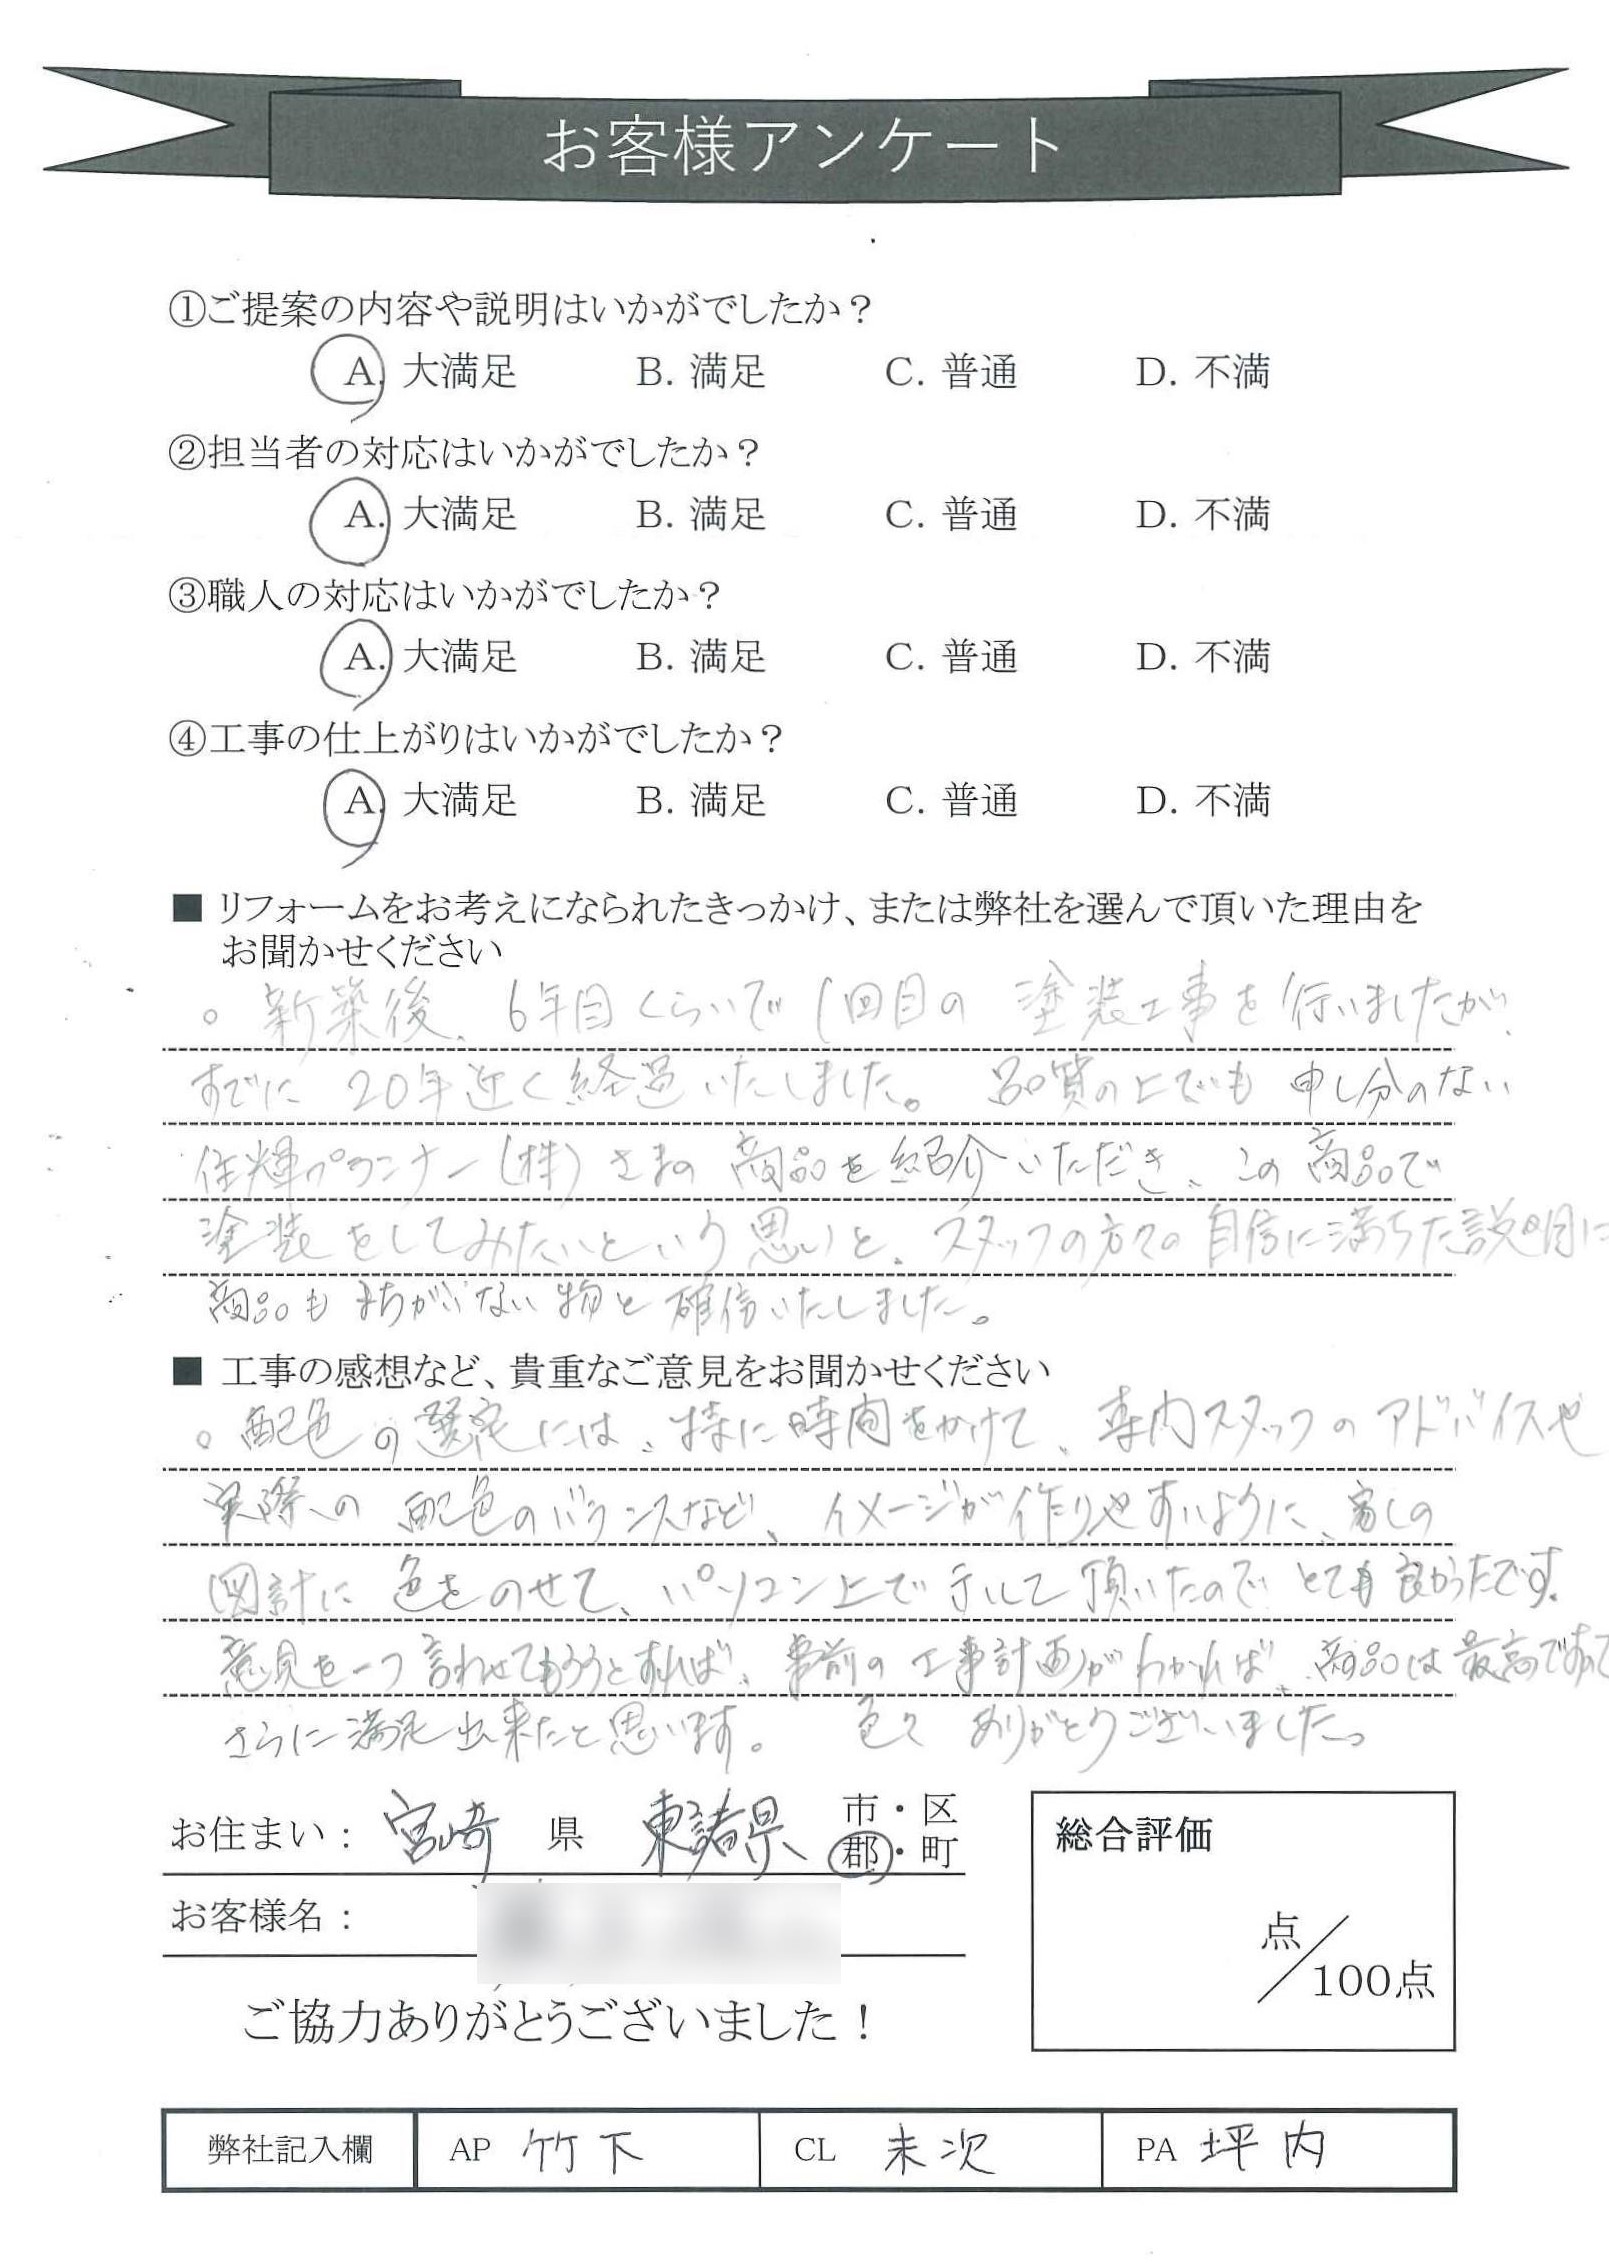 お客様アンケート
①ご提案の内容や説明はいかがでしたか？
A. 大満足 B. 満足 C. 普通 D. 不満
②担当者の対応はいかがでしたか？
A. 大満足 B. 満足 C. 普通 D. 不満
③職人の対応はいかがでしたか？
A. 大満足 B. 満足 C. 普通 D. 不満
④工事の仕上がりはいかがでしたか？
A. 大満足 B. 満足 C. 普通 D. 不満
■ リフォームをお考えになられたきっかけ、または弊社を選んで頂いた理由を
お聞かせください
。新築後、6年目くらいで1回目の塗装工事を行いましたが、
すでに20年近く経過いたしました。品質の上でも申し分のない
住輝プランナー(株)さまの商品を紹介いただき、この商品で
塗装をしてみたいという思いと、スタッフの方々の自信に満ちた説明に
商品もまちがいない物と確信いたしました。
■ 工事の感想など、貴重なご意見をお聞かせください
。配色の選定には、特に時間をかけて、専内スタッフのアドバイスや
実際の配色のバランスなど、イメージが作りやすいように、家の
図計に色をのせて、パソコン上で示して頂いたのでとても良かったです。
意見を一つ言わせてもらうとすれば、事前の工事計画がわかれば、商品は最高ですので
さらに満足出来たと思います。 色々ありがとうございました。
お住まい： 宮崎 県 東諸県 市・区
郡・町
お客様名：
総合評価
点／100点
ご協力ありがとうございました！
弊社記入欄 AP 竹下 CL 末次 PA 坪内